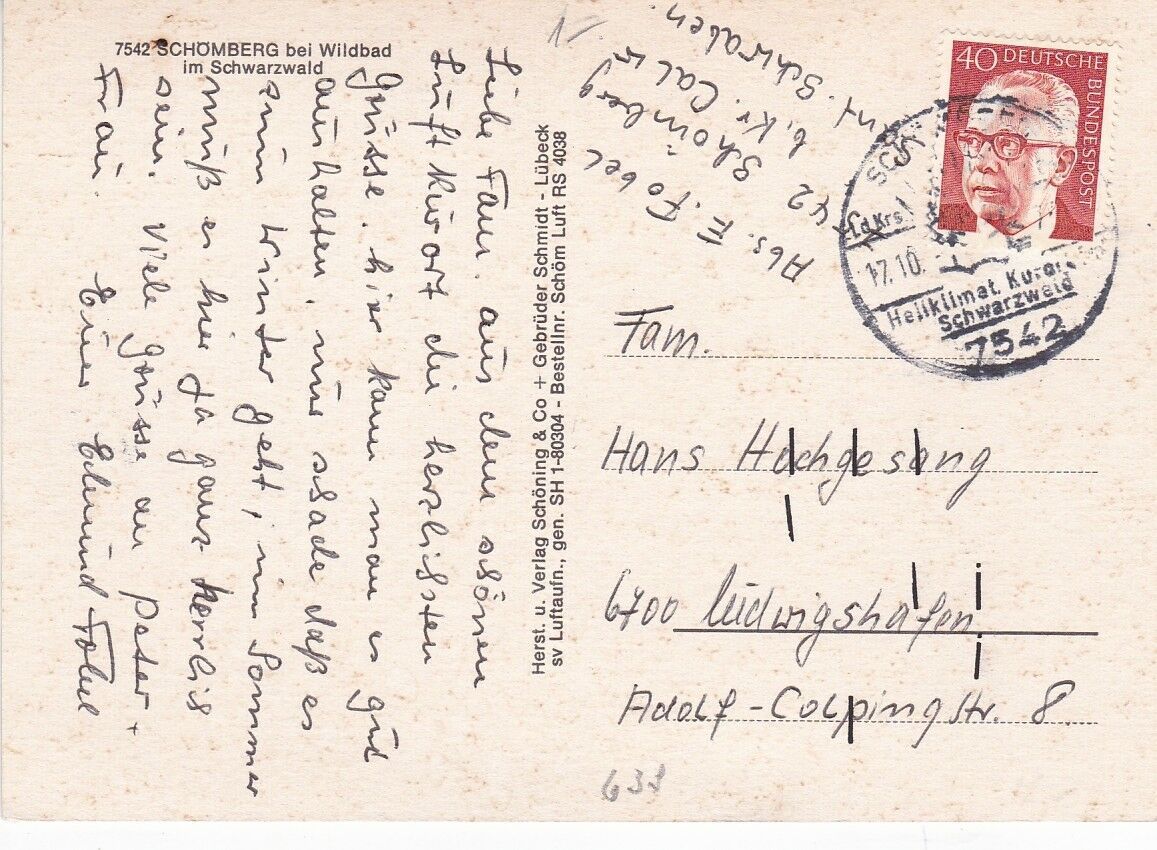 7542 SCHÖMBERG bei Wildbad
im Schwarzwald
Liebe Fam. aus dem schönen
Luftkurort die herzlichsten
Grüsse, hier kann man es gut
aushalten, nur schade daß es
zum Winter geht, im Sommer
muß es hier ja ganz herrlis
sein. Viele Grüsse an Peter +
Frau. Euer Edmund Fobel
Herst. u. Verlag Schöning & Co + Gebrüder Schmidt - Lübeck
sv Luftaufn., gen. SH 1-80304 - Bestellnr. Schöm Luft RS 4038
Abs. E. Fobel
Schömberg
Kr. Calw
Schwaben.
40 DEUTSCHE
BUNDESPOST
Ldkrs
17.10.
Heilklimat. Kurort
Schwarzwald
7542
Fam.
Hans Hochgesang
6700 Ludwigshafen
Adolf-Colpingstr. 8.
633